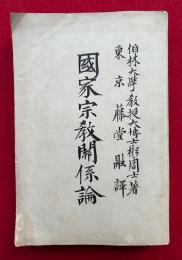 伯林大學教授大博士彬周士著
東京 藤堂融譯
國家宗教關係論